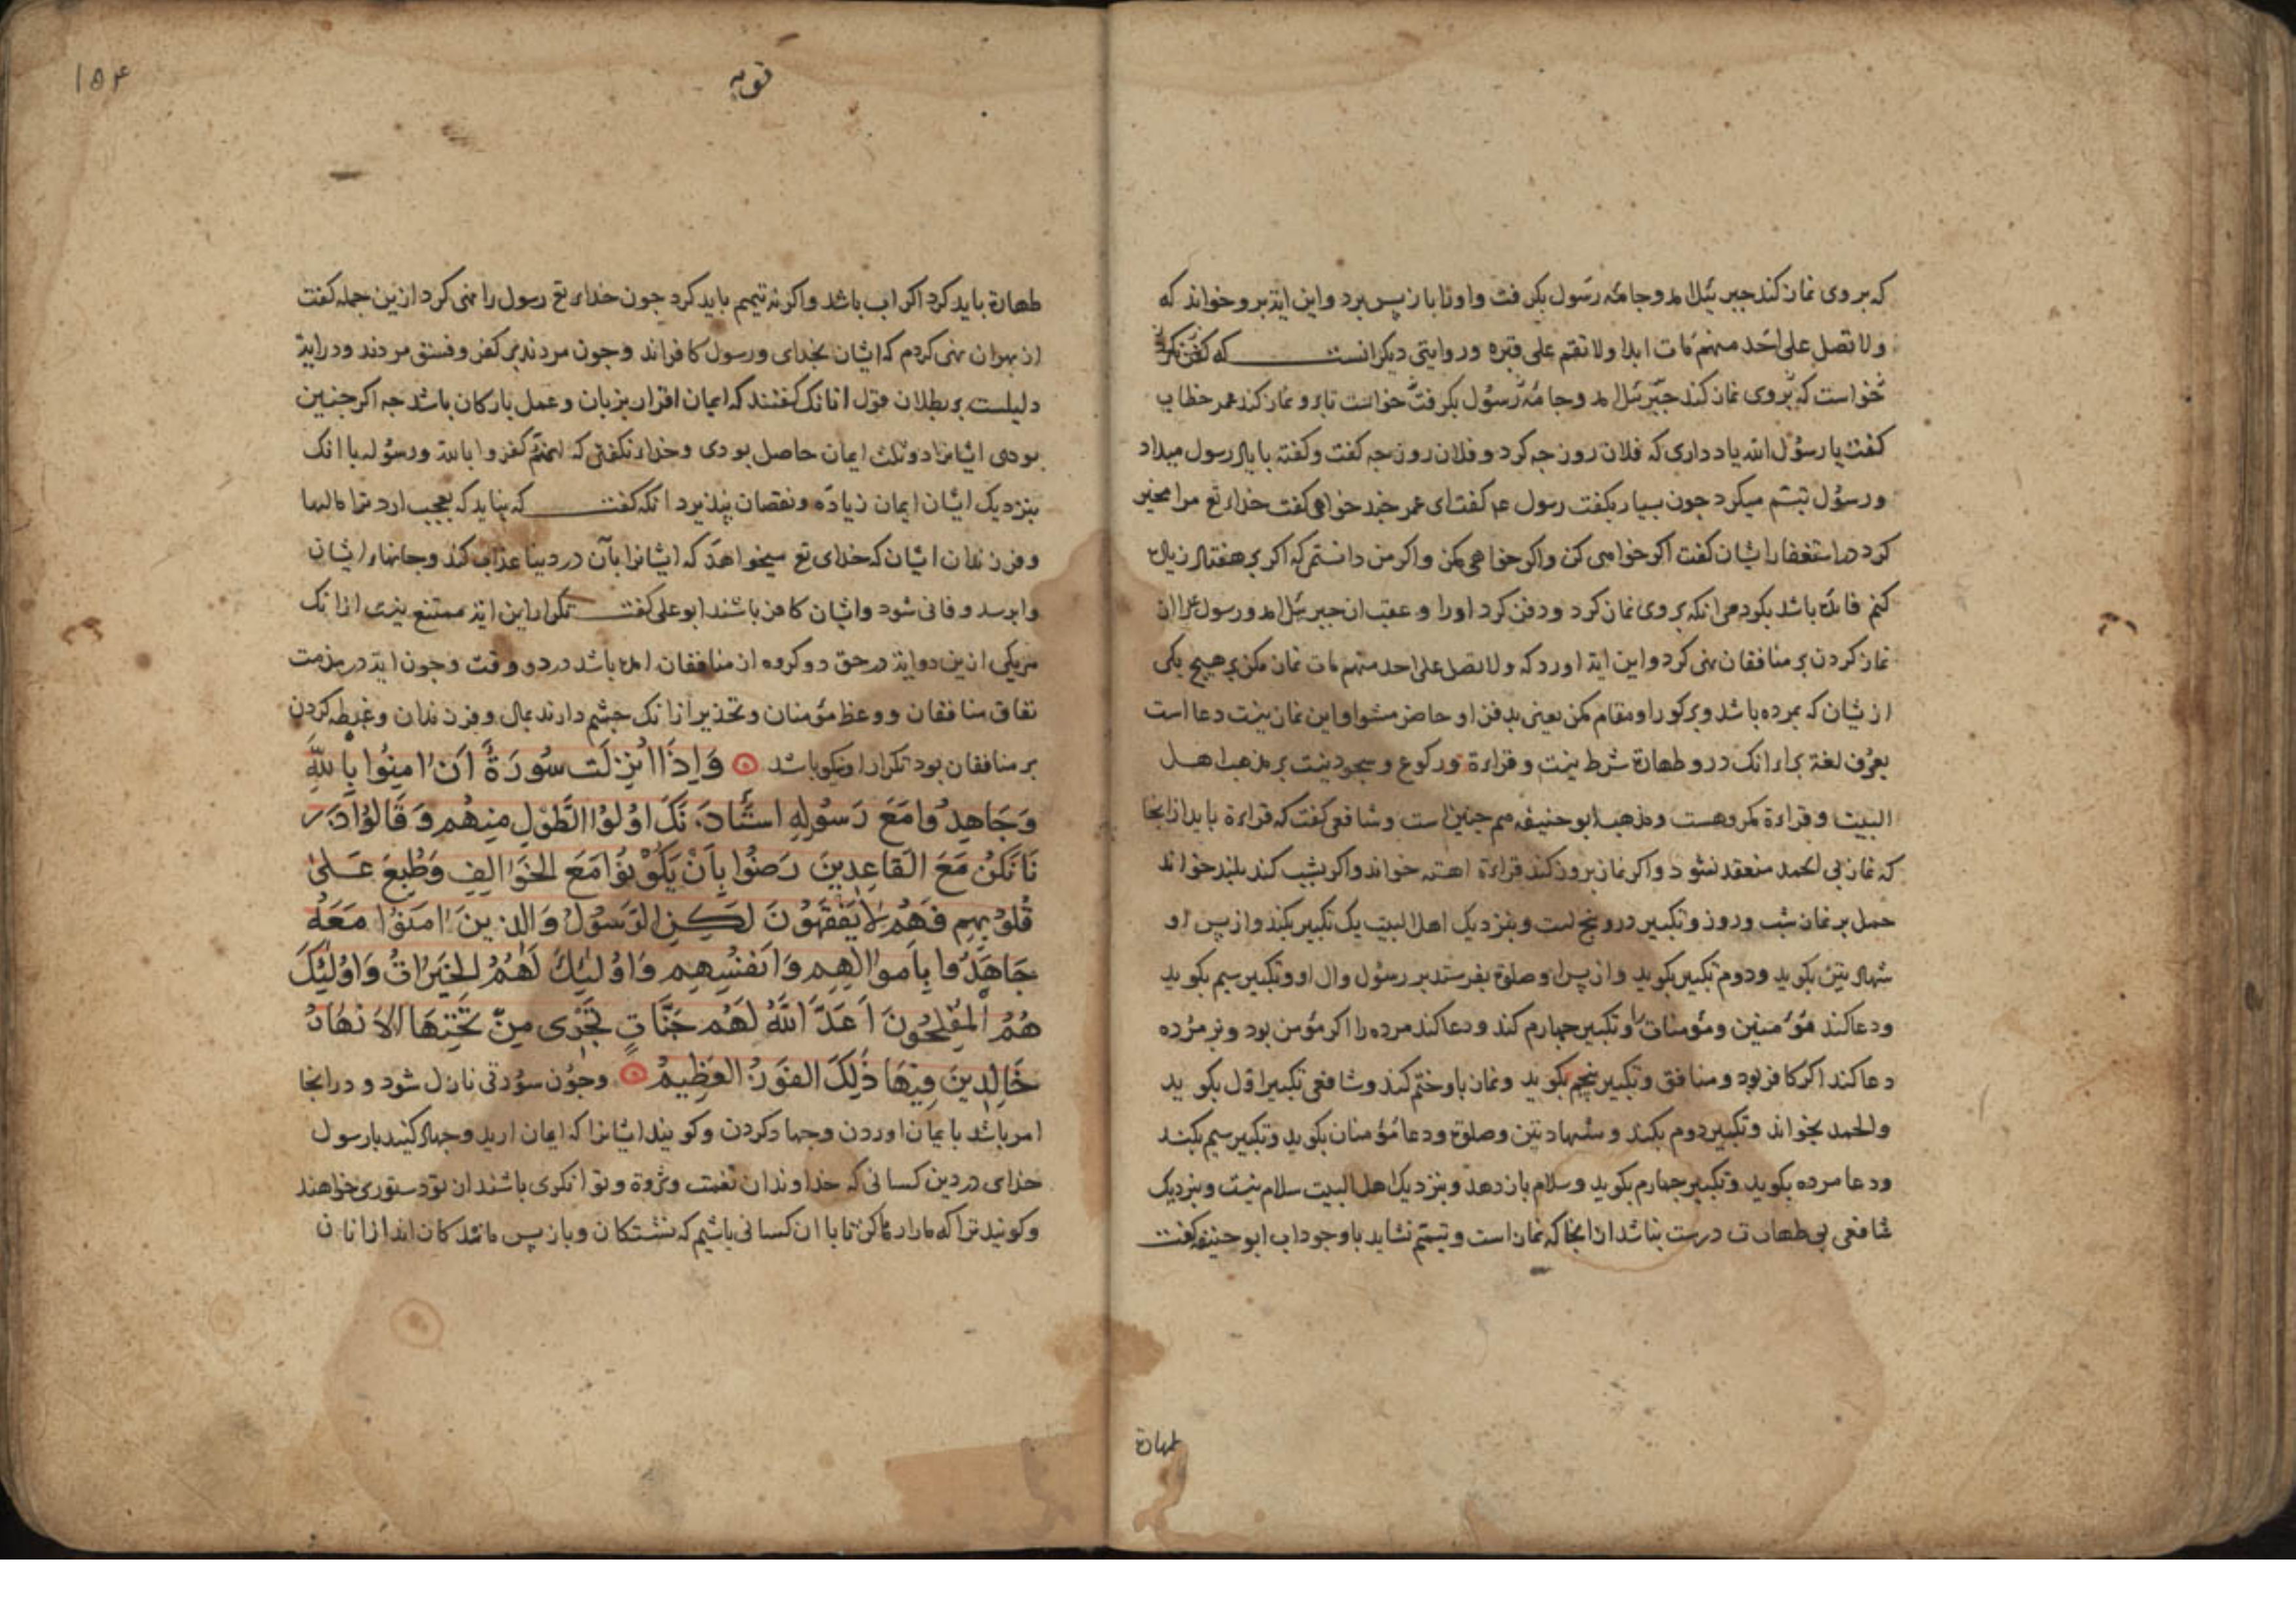 که بر وی نماز کند جبرئیل امد و جامه رسول بکرفت و اورا باز پس برد و این ایة برو خواند که
ولا تصل علی احد منهم مات ابدا ولا تقم علی قبره و روایتی دیکر انست که
خواست که بر وی نماز کند جبرئیل امد و جامه رسول بکرفت خواست تا برو نماز کند عمر خطاب
کفت یا رسول الله یاد داری که فلان روز جه کرد و فلان روز جه کفت و کفته با یاد رسول میداد
و رسول تبسم میکرد جون بسیار بکفت رسول عم کفت ای عمر جند خواهی کفت خدای تع مرا مخیر
کرد در استغفار ایشان کفت اکر خواهی کن و اکر خواهی مکن و اکر من دانستمی که اکر بر هفتاد زیاده
کنم فایده باشد بکردمی انکه بر وی نماز کرد و دفن کرد اورا و عقب ان جبرئیل امد و رسول را از
نماز کردن بر منافقان نهی کرد و این ایة اورد که ولا تصل علی احد منهم مات نماز مکن بر هیچ یکی
ازیشان که بمرده باشد و بر کور او مقام مکن یعنی بدفن او حاضر مشو و این نماز نیست دعا است
بعرف لغة برای انک درو طهارة شرط نیست و قراءة و رکوع و سجود نیست بر مذهب اهل
البیت و قراءة مکروهست و مذهب ابو حنیفه هم جنین است و شافعی کفت که قراءة باید از انجا
که نماز بی الحمد منعقد نشود و اکر نماز بروز کند قراءة اهسته خواند و اکر بشب کند بلند خواند
حمل بر نماز شب و روز و تکبیر درو پنج است و بنزدیک اهل البیت یک تکبیر بکند و از پس او
شهادتین بکوید و دوم تکبیر بکوید و از پس او صلوة بفرستد بر رسول و ال او و تکبیر سیم بکوید
و دعا کند مؤمنین و مؤمنات را و تکبیر جهارم کند و دعا کند مرده را اکر مؤمن بود و بر مرده
دعا کند اکر کافر بود و منافق و تکبیر پنجم بکوید و نماز باو ختم کند و شافعی تکبیر اول بکوید
والحمد بخواند و تکبیر دوم بکند و شهادتین و صلوة و دعا مؤمنان بکوید و تکبیر سیم بکند
و دعا مرده بکوید و تکبیر جهارم بکوید و سلام باز دهد و بنزدیک اهل البیت سلام نیست و بنزدیک
شافعی بی طهارت درست نباشد از انجا که نماز است و تیمم نشاید با وجود اب ابو حنیفه کفت
طهارة
۱۵۴
توبه
طهارة باید کرد اکر اب باشد و اکر نه تیمم باید کرد جون خدای تع رسول را نهی کرد ازین جمله کفت
از بهر ان نهی کردم که ایشان بخدای و رسول کافراند و جون مردند بر کفر و فسق مردند و در ایة
دلیلست بر بطلان قول انانک کفتند که ایمان اقرار بزبان و عمل بارکان باشد جه اکر جنین
بودی ایشانرا دو ثلث ایمان حاصل بودی و خدا نکفتی که انهم کفروا بالله و رسوله با انک
بنزدیک ایشان ایمان زیاده و نقصان پذیرد انکه کفت که نباید که بعجب ارد ترا مالها
و فرزندان ایشان که خدای تع میخواهد که ایشانرا بآن در دنیا عذاب کند و جانهاء ایشان
وابرسد و فانی شود و ایشان کافر باشند ابو علی کفت تکرار این ایة ممتنع نیست از انک
هریکی ازین دو ایة در حق دو کروه از منافقان امده باشد در دو وقت و جون ایة در مذمت
نفاق منافقان و وعظ مؤمنان و تحذیر از انک جشم دارند بمال و فرزندان و غبطه کردن
بر منافقان بود تکرار او نیکو باشد وَاِذَا اُنْزِلَت سُورَةٌ اَنْ اٰمِنُوا بِاللّٰهِ
وَجَاهِدُوا مَعَ رَسُولِهِ اسْتَأْذَنَكَ اُولُوا الطَّوْلِ مِنهُم وَقَالُوا ذَرْ
نَا نَكُن مَعَ القَاعِدِينَ رَضُوا بِاَنْ يَكُونُوا مَعَ الخَوَالِفِ وَطُبِعَ عَلىٰ
قُلُوبِهِم فَهُم لَا يَفقَهُونَ لَكِنِ الرَّسُولُ وَالَّذِينَ اٰمَنُوا مَعَهُ
جَاهَدُوا بِاَموَالِهِم وَاَنفُسِهِم وَاُولٰئِكَ لَهُمُ الخَيرَاتُ وَاُولٰئِكَ
هُمُ المُفلِحُونَ اَعَدَّ اللّٰهُ لَهُم جَنَّاتٍ تَجرِى مِن تَحتِهَا الاَنهَارُ
خَالِدِينَ فِيهَا ذٰلِكَ الفَوزُ العَظِيمُ و جون سورتی نازل شود و در انجا
امر باشد بایمان اوردن و جهاد کردن و کویند ایشانرا که ایمان ارید و جهاد کنید با رسول
خدای در دین کسانی که خداوندان نعمت و ثروة و توانکری باشند از تو دستوری خواهند
و کویند ترا که مارا رها کن تا با ان کسانی باشیم که نشستکان و باز پس ماندکان اند از انان